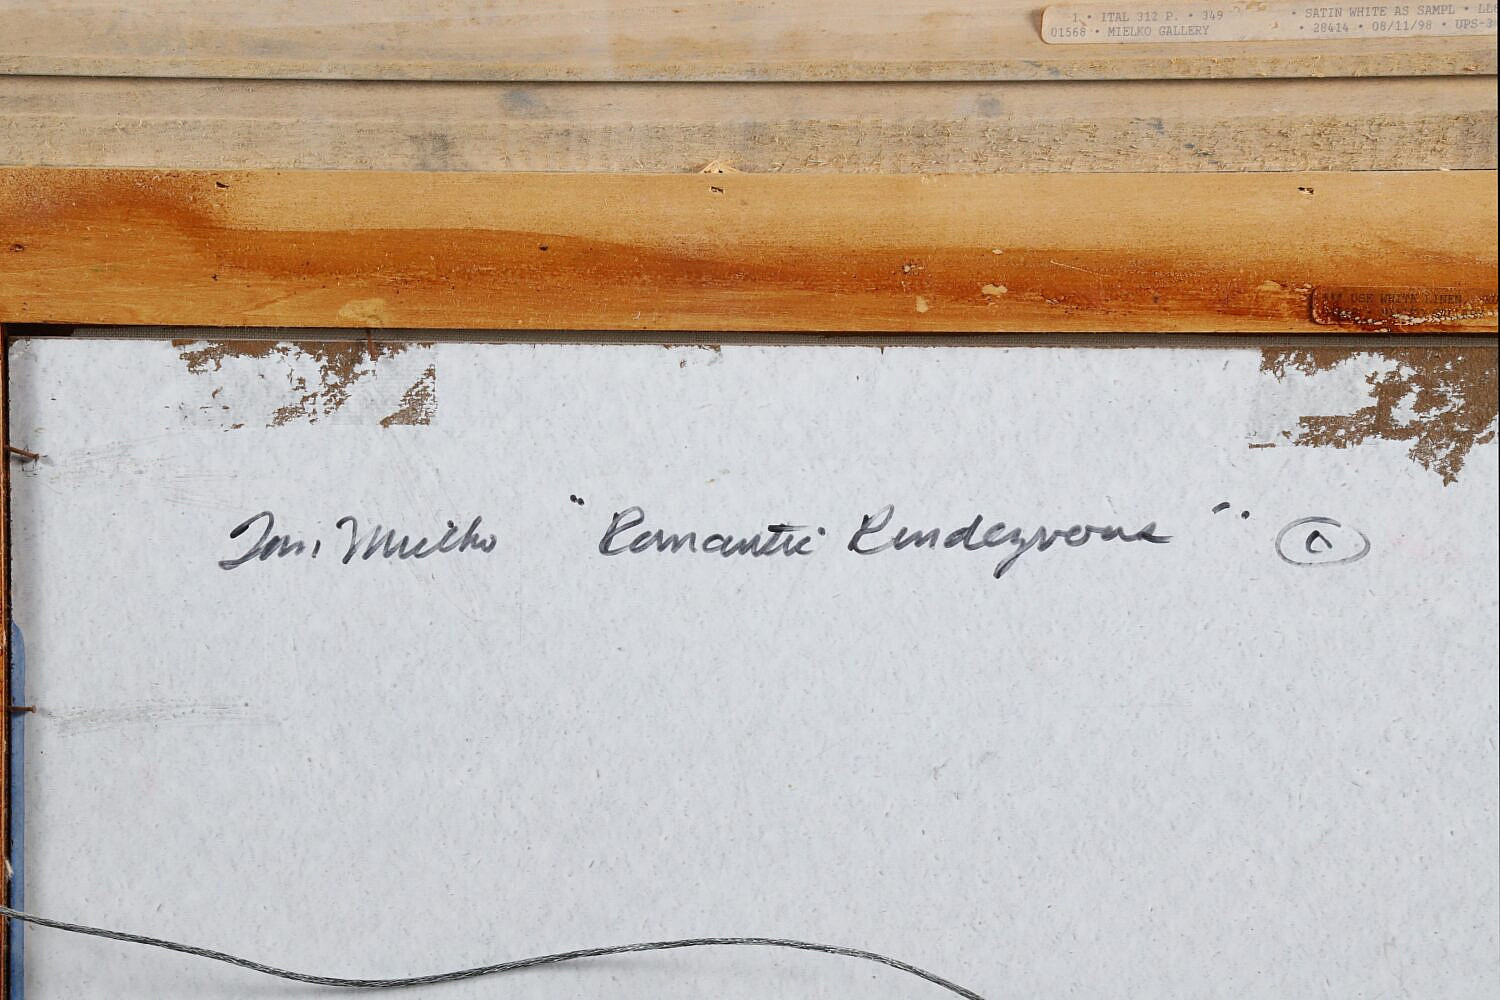 1 • ITAL 312 P. • 349 • SATIN WHITE AS SAMPL • LL8
01568 • MIELKO GALLERY • 28414 • 08/11/98 • UPS-3
USE WHITE LINEN
Toni Mielko "Romantic Rendezvous" ©